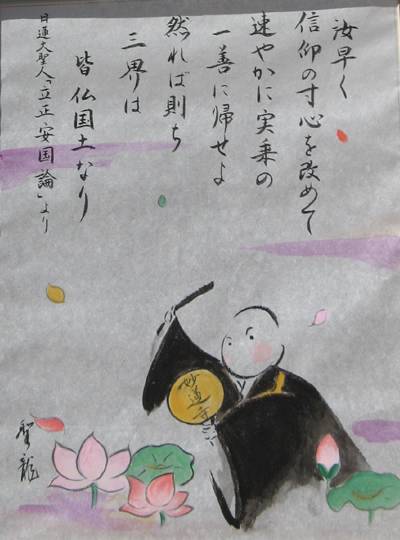 汝早く
信仰の寸心を改めて
速やかに実乗の
一善に帰せよ
然れば則ち
三界は
皆仏国土なり
日蓮大聖人「立正安国論」より
妙蓮寺
聖龍